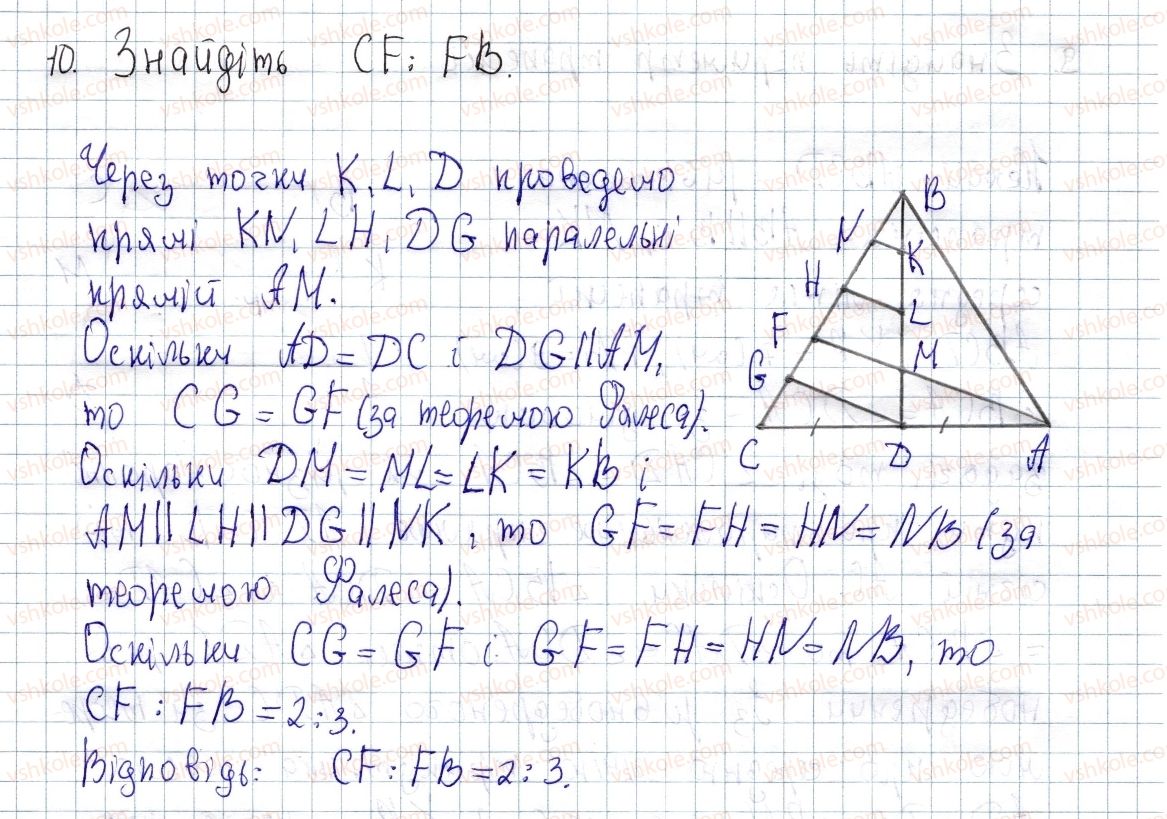 10. Знайдіть CF : FB.
Через точки K, L, D проведемо
прямі KN, LH, DG паралельні
прямій AM.
Оскільки AD = DC і DG || AM,
то CG = GF (за теоремою Фалеса).
Оскільки DM = ML = LK = KB і
AM || LH || DG || NK, то GF = FH = HN = NB (за
теоремою Фалеса).
Оскільки CG = GF і GF = FH = HN = NB, то
CF : FB = 2 : 3.
Відповідь: CF : FB = 2 : 3.
B
N
K
H
L
F
M
G
C
D
A
vshkole.com